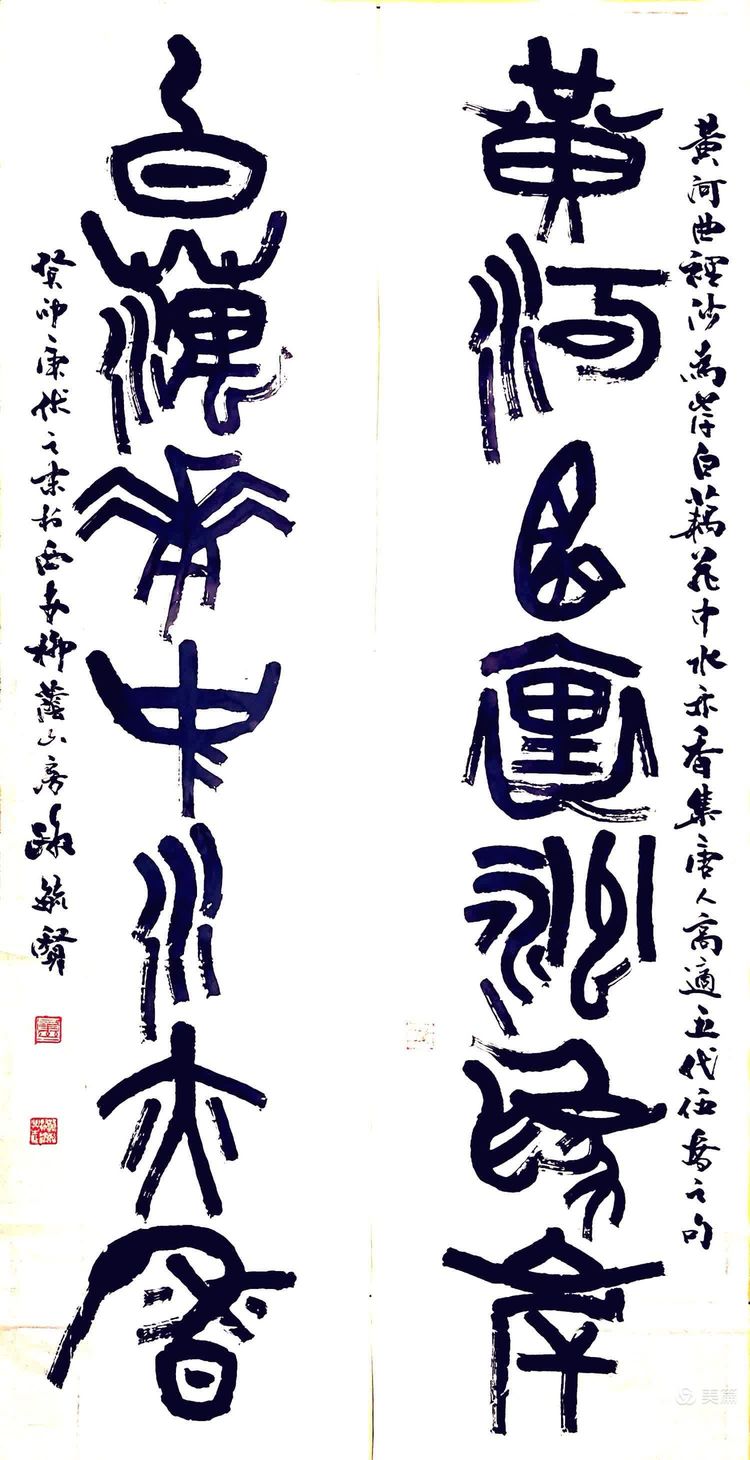 黃河曲裡沙為岸白藕花中水亦香集唐人高適五代伍喬之句
黃河曲裏沙為岸
白藕花中水亦香
癸卯庚伏之末於西安柳蔭山房毓賢
美篇